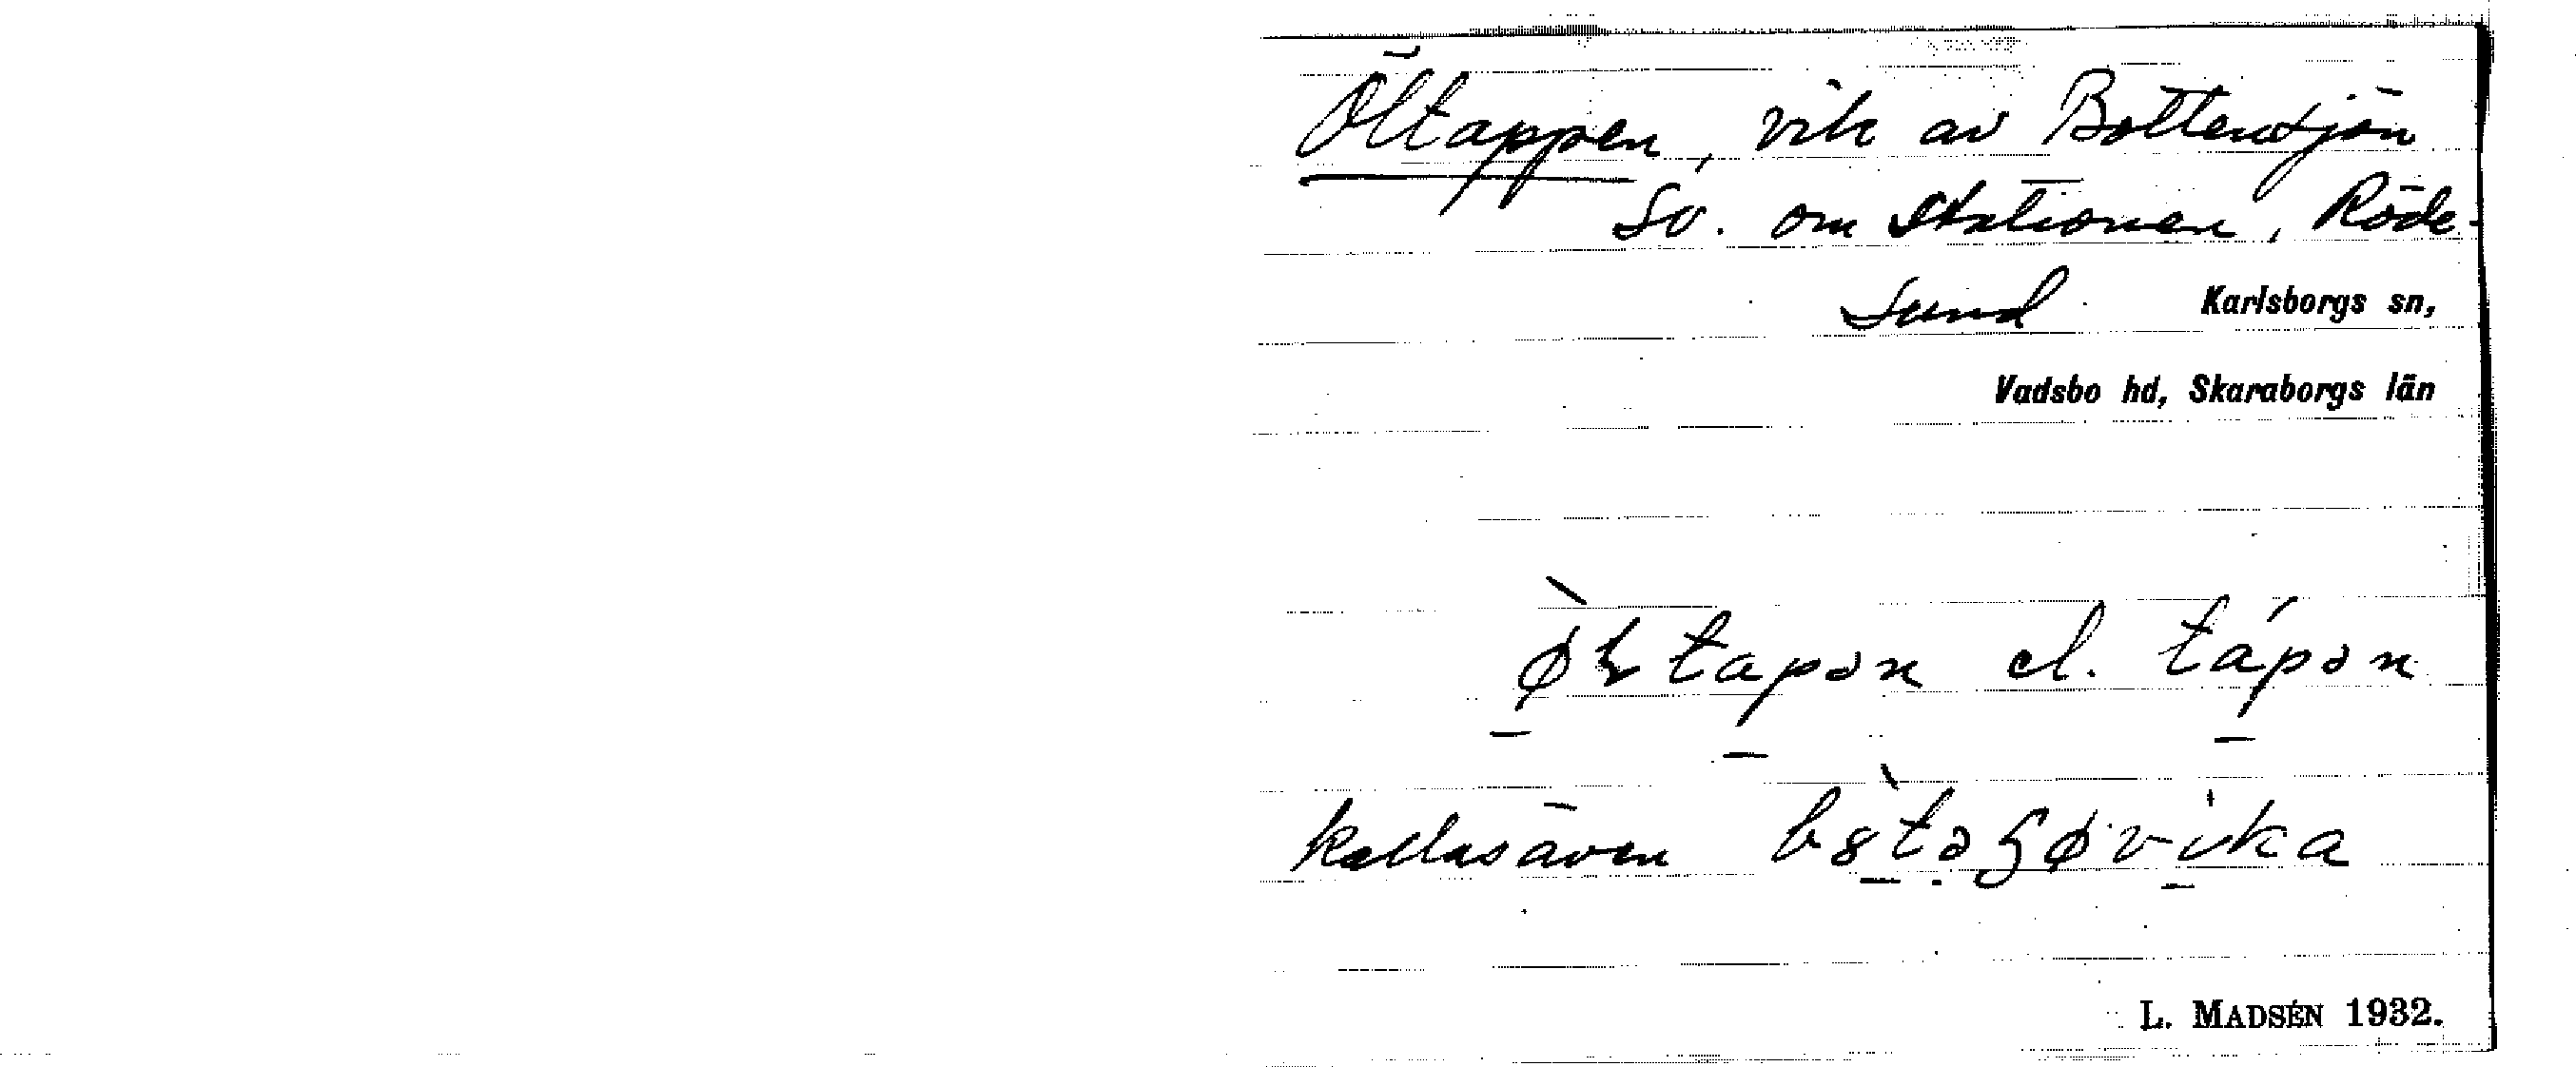 Öltappen, vik av Bottensjön
SV. om Stationen, Röde-
sund Karlsborgs sn,
Vadsbo hd, Skaraborgs län
tapən el. tápən
kallas även
L. MADSÉN 1932.